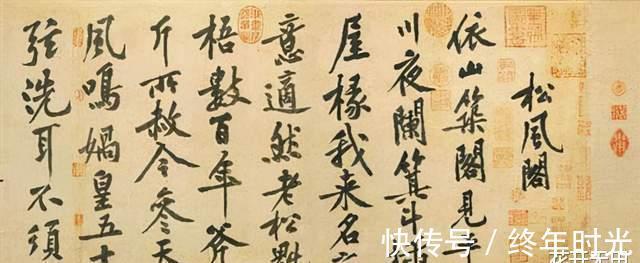 松风阁
依山築閣見平
川夜闌箕斗插
屋椽我来名之
意適然老松魁
梧數百年斧
斤所赦今參天
風鳴媧皇五十
弦洗耳不須
快传号/终年时光